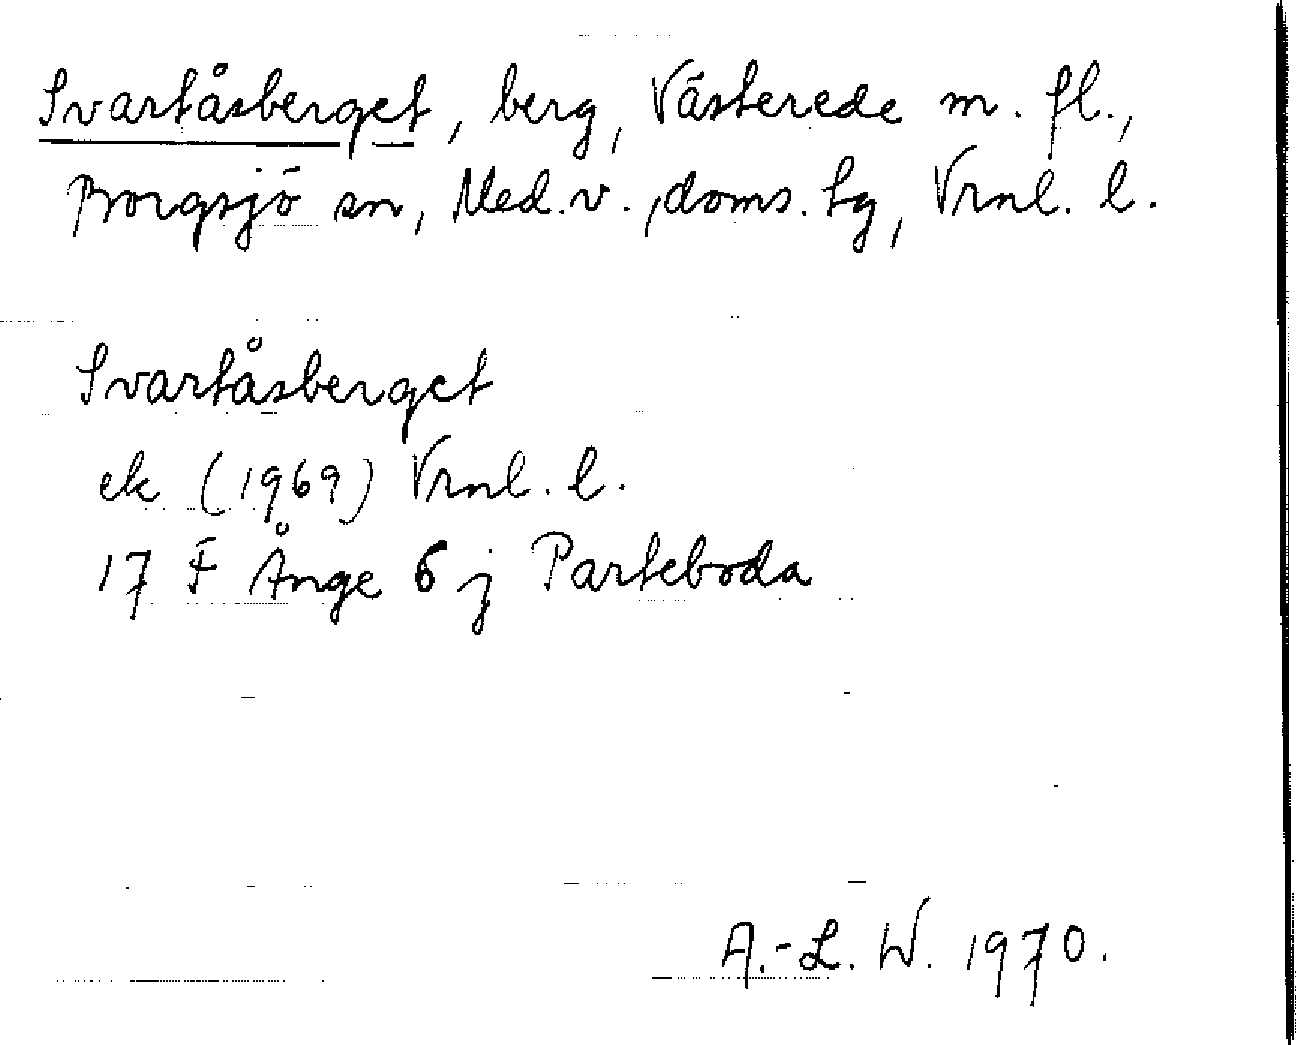 Svartåsberget, berg, Västerede m. fl.,
Borgsjö sn, Med. v., doms. tg, Vrnl. l.
Svartåsberget
ek (1969) Vrnl. l.
17 F Ånge 6 j Parteboda
A.-L. W. 1970.